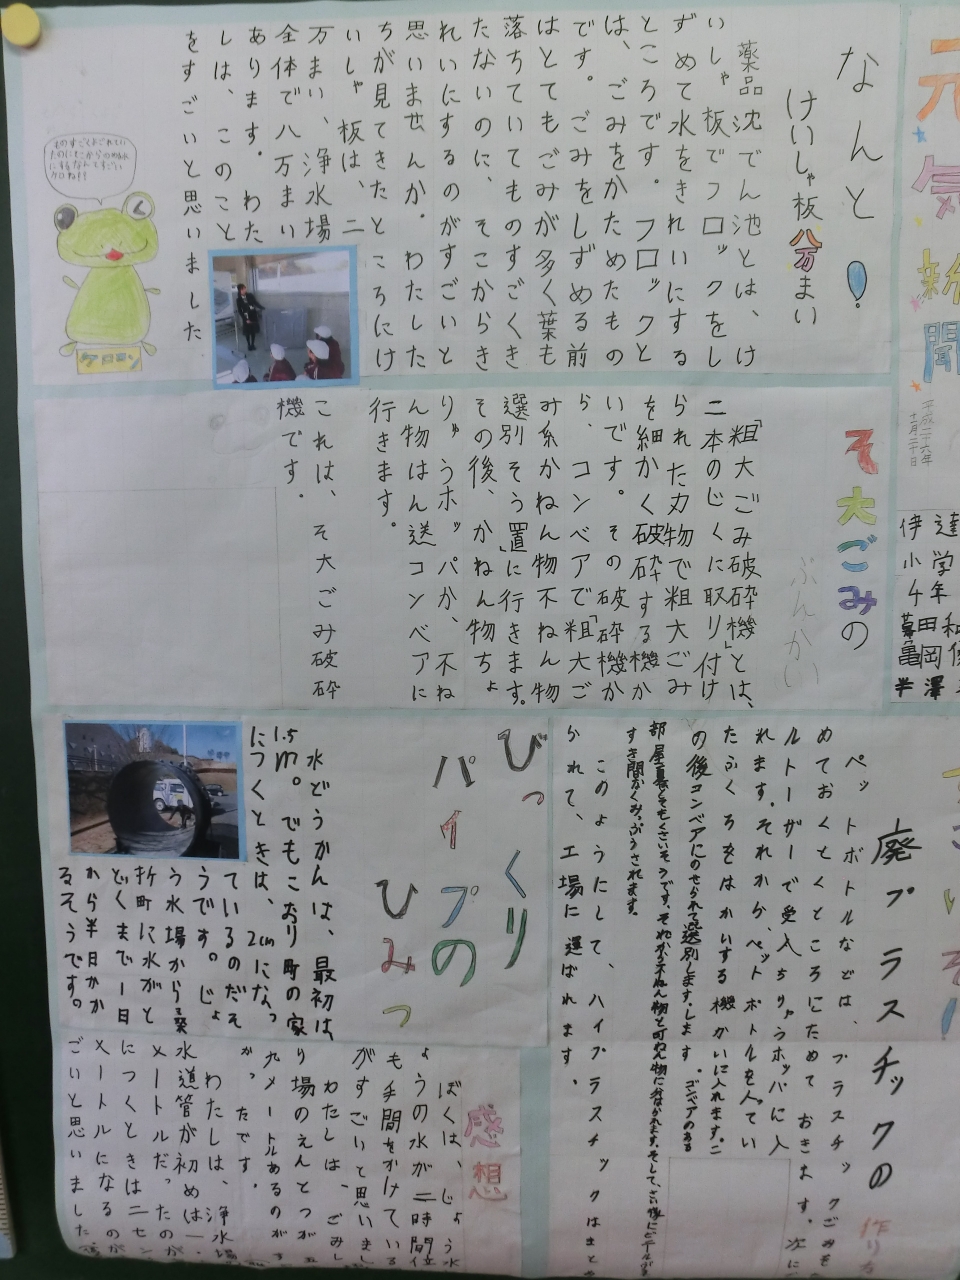 元気新聞
平成二十六年
十二月二十日
伊達
小学
4年
田
亀岡
半澤
なんと!
けいしゃ板八万まい
薬品沈でん池とは、け
いしゃ板でフロックをし
ずめて水をきれいにする
ところです。フロックと
は、ごみをかためたもの
です。ごみをしずめる前
はとてもごみが多く葉も
落ちていてものすごくき
たないのに、そこからき
れいにするのがすごいと
思いませんか。わたした
ちが見てきたところにけ
いしゃ板は、二
万まい、浄水場
全体で八万まい
あります。わた
しは、このこと
をすごいと思いました
ものすごくよごれてい
クロね!!
ケロヨン
そ大ごみの
ぶんかい
「粗大ごみ破砕機」とは、
二本のじくに取り付け
られた刃物で粗大ごみ
を細かく破砕する機か
いです。その破砕機か
ら、コンベアで「粗大ご
み系かねん物不ねん物
選別そう置」に行きます。
その後、かねん物ちょ
りゅうホッパか、不ね
ん物はん送コンベアに
行きます。
これは、そ大ごみ破砕
機です。
廃プラスチックの
作り方
ペットボトルなどは、プラスチックごみも
めておくとくところにためておきます。次に
ルトーザーで受入ちりゅうホッパに入
れます。それから、ペットボトルを入てい
たふくろをはかいする機かいに入れます。こ
の後コンベアにのせられて選別します。します。コンベアのある
すき間がくみっぷうされます。
このようにして、ハイプラスチックはまとめ
られて、工場に運ばれます。
びっくり
パイプの
ひみつ
水どうかんは、最初は、
1.5m。でもこおり町の家
につくときは、2cmになっ
ているのだそ
うです。じょ
う水場から桑
折町に水がと
どくまで一日
から半日かか
るそうです。
感想
ぼくは、じょう水
ようの水が二時間位
も手間をかけている
がすごいと思いまし
わたしは、ごみし
り場のえんとつが五
九メートルあるのがす
かったです。
わたしは、浄水場
水道管が初めは一.
メートルだったのが
につくときは二セン
メートルになるのが
ごいと思いました